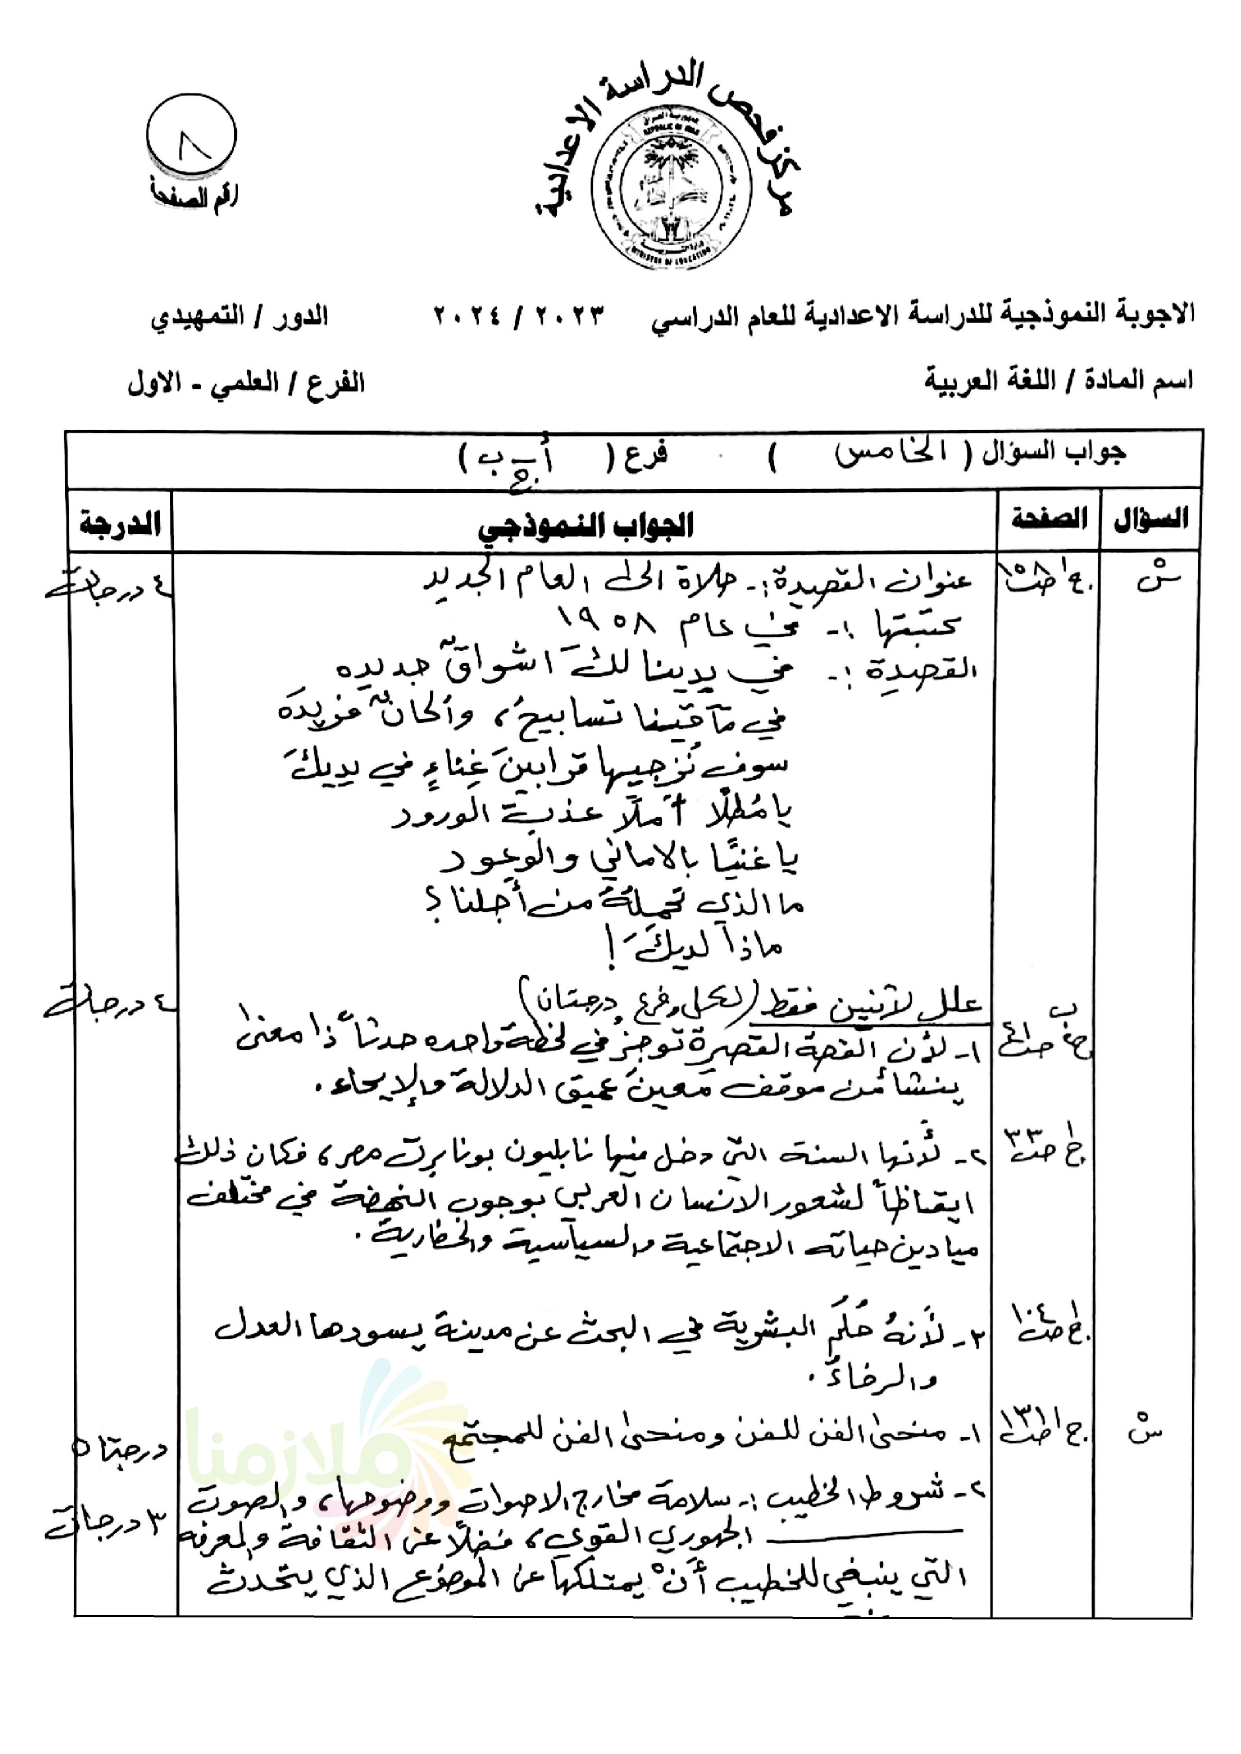 مركز فحص الدراسة الاعدادية
جمهورية العراق
REPUBLIC OF IRAQ
وزارة التربية
MINISTRY OF EDUCATION
٨
رقم الصفحة
الاجوبة النموذجية للدراسة الاعدادية للعام الدراسي ٢٠٢٣ / ٢٠٢٤ الدور / التمهيدي
اسم المادة / اللغة العربية الفرع / العلمي - الاول
جواب السؤال ( الخامس ) فرع ( أ - ب ) ج
السؤال الصفحة الجواب النموذجي الدرجة
ج١ ص١٥٨ عنوان القصيدة :- صلاة الى العام الجديد ٤ درجات
كتبتها :- في عام ١٩٥٨
القصيدة :- في يدينا لكَ اشواقٌ جديده
في مآقينا تسابيحُ، وألحانٌ فريدَه
سوف نُزجيها قرابينَ غِناءٍ في يديكَ
يا مُطِلًّا أملًا عذبَ الورود
يا غنيًّا بالاماني والوعود
ما الذي تحملهُ من أجلنا ؟
ماذا لديكَ !
ب علل لاثنين فقط (لكل فرع درجتان) ٤ درجات
ج٢ ص٤١ ١- لأن القصة القصيرة توجزُ في لحظة واحده حدثاً ذا معنى
ينشأ من موقف معين عميق الدلالة والإيحاء.
ج١ ص٣٣ ٢- لأنها السنة التي دخل فيها نابليون بونابرت مصر، فكان ذلك
ايقاظاً لشعور الانسان العربي بوجوب النهضة في مختلف
ميادين حياته الاجتماعية والسياسية والحضارية.
ج١ ص١٠٤ ٣- لأنهُ حُلُم البشرية في البحث عن مدينة يسودها العدل
والرخاءُ.
ج١ ص١٣١ ١- منحى الفن للفن ومنحى الفن للمجتمع درجتان
٢- شروط الخطيب :- سلامة مخارج الاصوات ووضوحها، والصوت
الجهوري القوي، فضلًا عن الثقافة والمعرفه ٣ درجات
التي ينبغي للخطيب أنْ يمتلكها عن الموضوع الذي يتحدث
ملازمنا